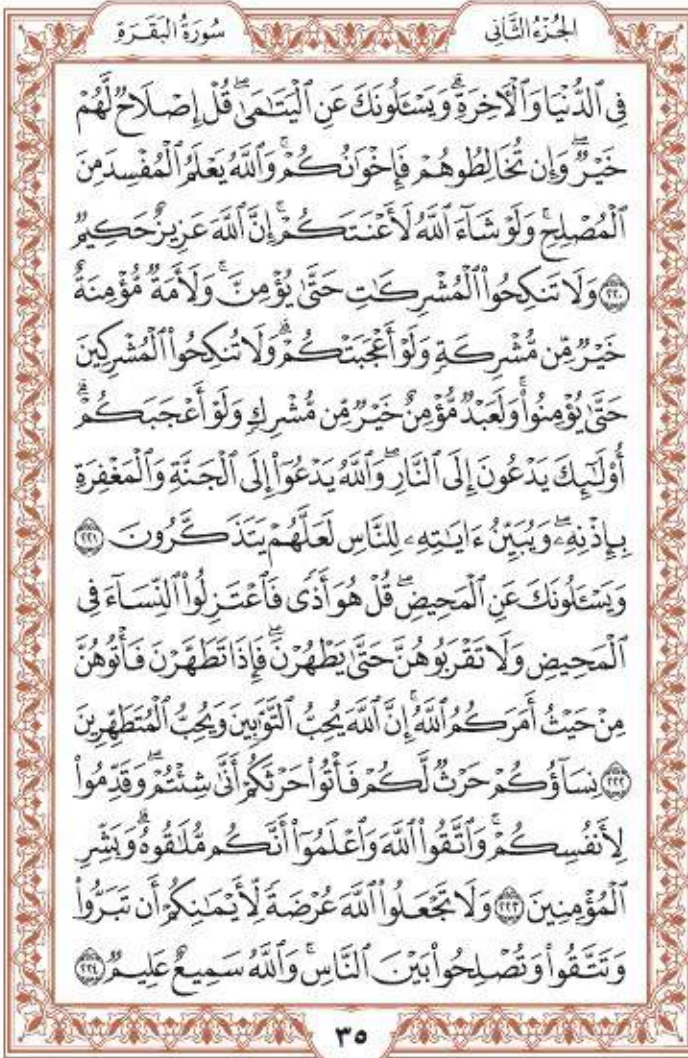 الجُزْءُ الثَّانِي
سُورَةُ البَقَرَةِ
فِي ٱلدُّنْيَا وَٱلْـَٔاخِرَةِۗ وَيَسْـَٔلُونَكَ عَنِ ٱلْيَتَٰمَىٰۖ قُلْ إِصْلَاحٌ لَّهُمْ
خَيْرٌۖ وَإِن تُخَالِطُوهُمْ فَإِخْوَٰنُكُمْۚ وَٱللَّهُ يَعْلَمُ ٱلْمُفْسِدَ مِنَ
ٱلْمُصْلِحِۚ وَلَوْ شَآءَ ٱللَّهُ لَأَعْنَتَكُمْۚ إِنَّ ٱللَّهَ عَزِيزٌ حَكِيمٌ
٢٢٠ وَلَا تَنكِحُوا۟ ٱلْمُشْرِكَٰتِ حَتَّىٰ يُؤْمِنَّۚ وَلَأَمَةٌ مُّؤْمِنَةٌ
خَيْرٌ مِّن مُّشْرِكَةٍ وَلَوْ أَعْجَبَتْكُمْۗ وَلَا تُنكِحُوا۟ ٱلْمُشْرِكِينَ
حَتَّىٰ يُؤْمِنُوا۟ۚ وَلَعَبْدٌ مُّؤْمِنٌ خَيْرٌ مِّن مُّشْرِكٍ وَلَوْ أَعْجَبَكُمْۗ
أُو۟لَٰٓئِكَ يَدْعُونَ إِلَى ٱلنَّارِۖ وَٱللَّهُ يَدْعُوٓا۟ إِلَى ٱلْجَنَّةِ وَٱلْمَغْفِرَةِ
بِإِذْنِهِۦۖ وَيُبَيِّنُ ءَايَٰتِهِۦ لِلنَّاسِ لَعَلَّهُمْ يَتَذَكَّرُونَ ٢٢١
وَيَسْـَٔلُونَكَ عَنِ ٱلْمَحِيضِۖ قُلْ هُوَ أَذًى فَٱعْتَزِلُوا۟ ٱلنِّسَآءَ فِي
ٱلْمَحِيضِ وَلَا تَقْرَبُوهُنَّ حَتَّىٰ يَطْهُرْنَۖ فَإِذَا تَطَهَّرْنَ فَأْتُوهُنَّ
مِنْ حَيْثُ أَمَرَكُمُ ٱللَّهُۚ إِنَّ ٱللَّهَ يُحِبُّ ٱلتَّوَّٰبِينَ وَيُحِبُّ ٱلْمُتَطَهِّرِينَ
٢٢٢ نِسَآؤُكُمْ حَرْثٌ لَّكُمْ فَأْتُوا۟ حَرْثَكُمْ أَنَّىٰ شِئْتُمْۖ وَقَدِّمُوا۟
لِأَنفُسِكُمْۚ وَٱتَّقُوا۟ ٱللَّهَ وَٱعْلَمُوٓا۟ أَنَّكُم مُّلَٰقُوهُۗ وَبَشِّرِ
ٱلْمُؤْمِنِينَ ٢٢٣ وَلَا تَجْعَلُوا۟ ٱللَّهَ عُرْضَةً لِّأَيْمَٰنِكُمْ أَن تَبَرُّوا۟
وَتَتَّقُوا۟ وَتُصْلِحُوا۟ بَيْنَ ٱلنَّاسِۚ وَٱللَّهُ سَمِيعٌ عَلِيمٌ ٢٢٤
٣٥